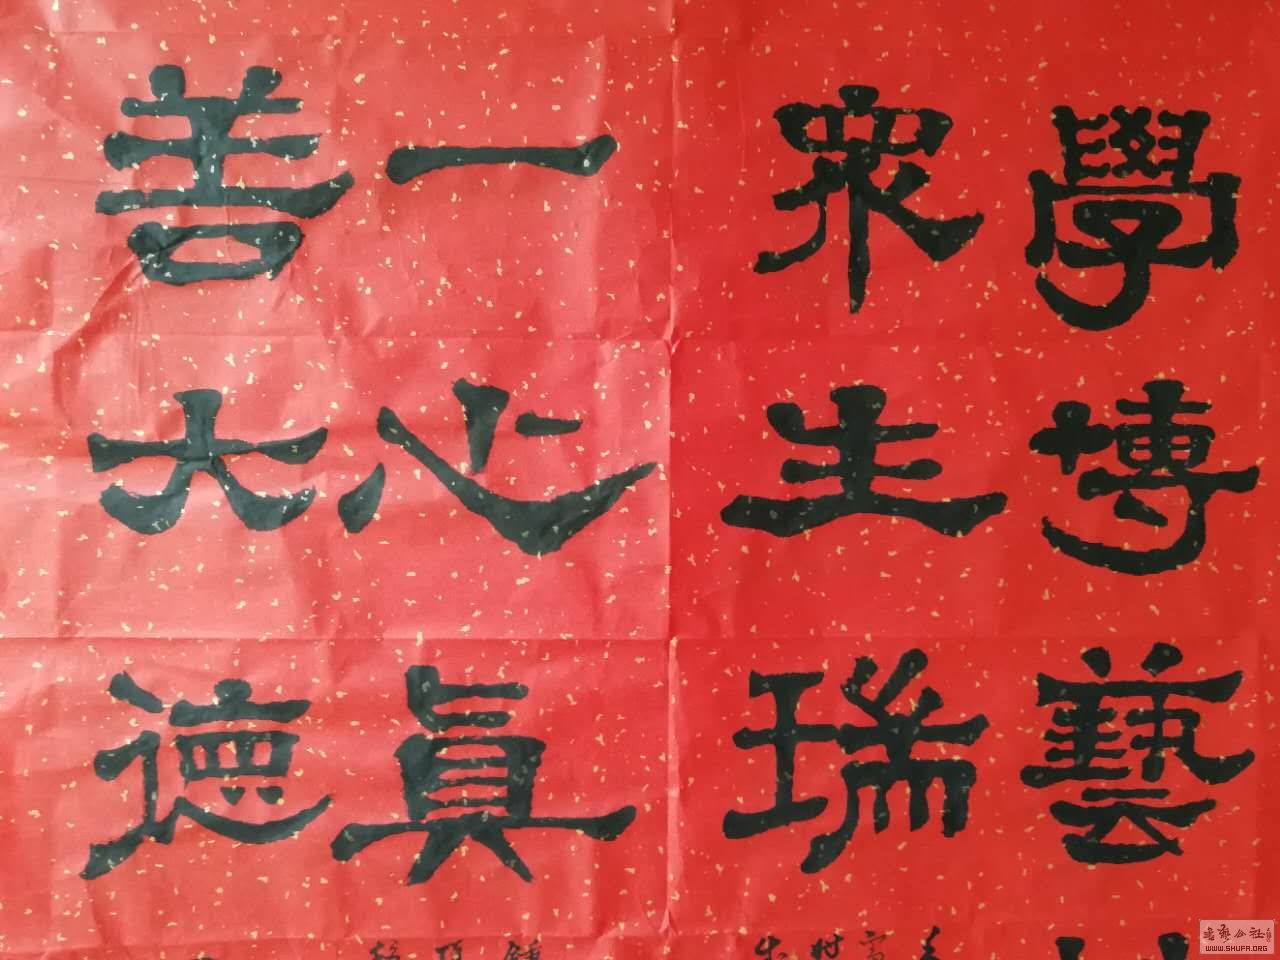 學博藝
眾生瑞
一心真
善大德
书艺公社
WWW.SHUFA.ORG